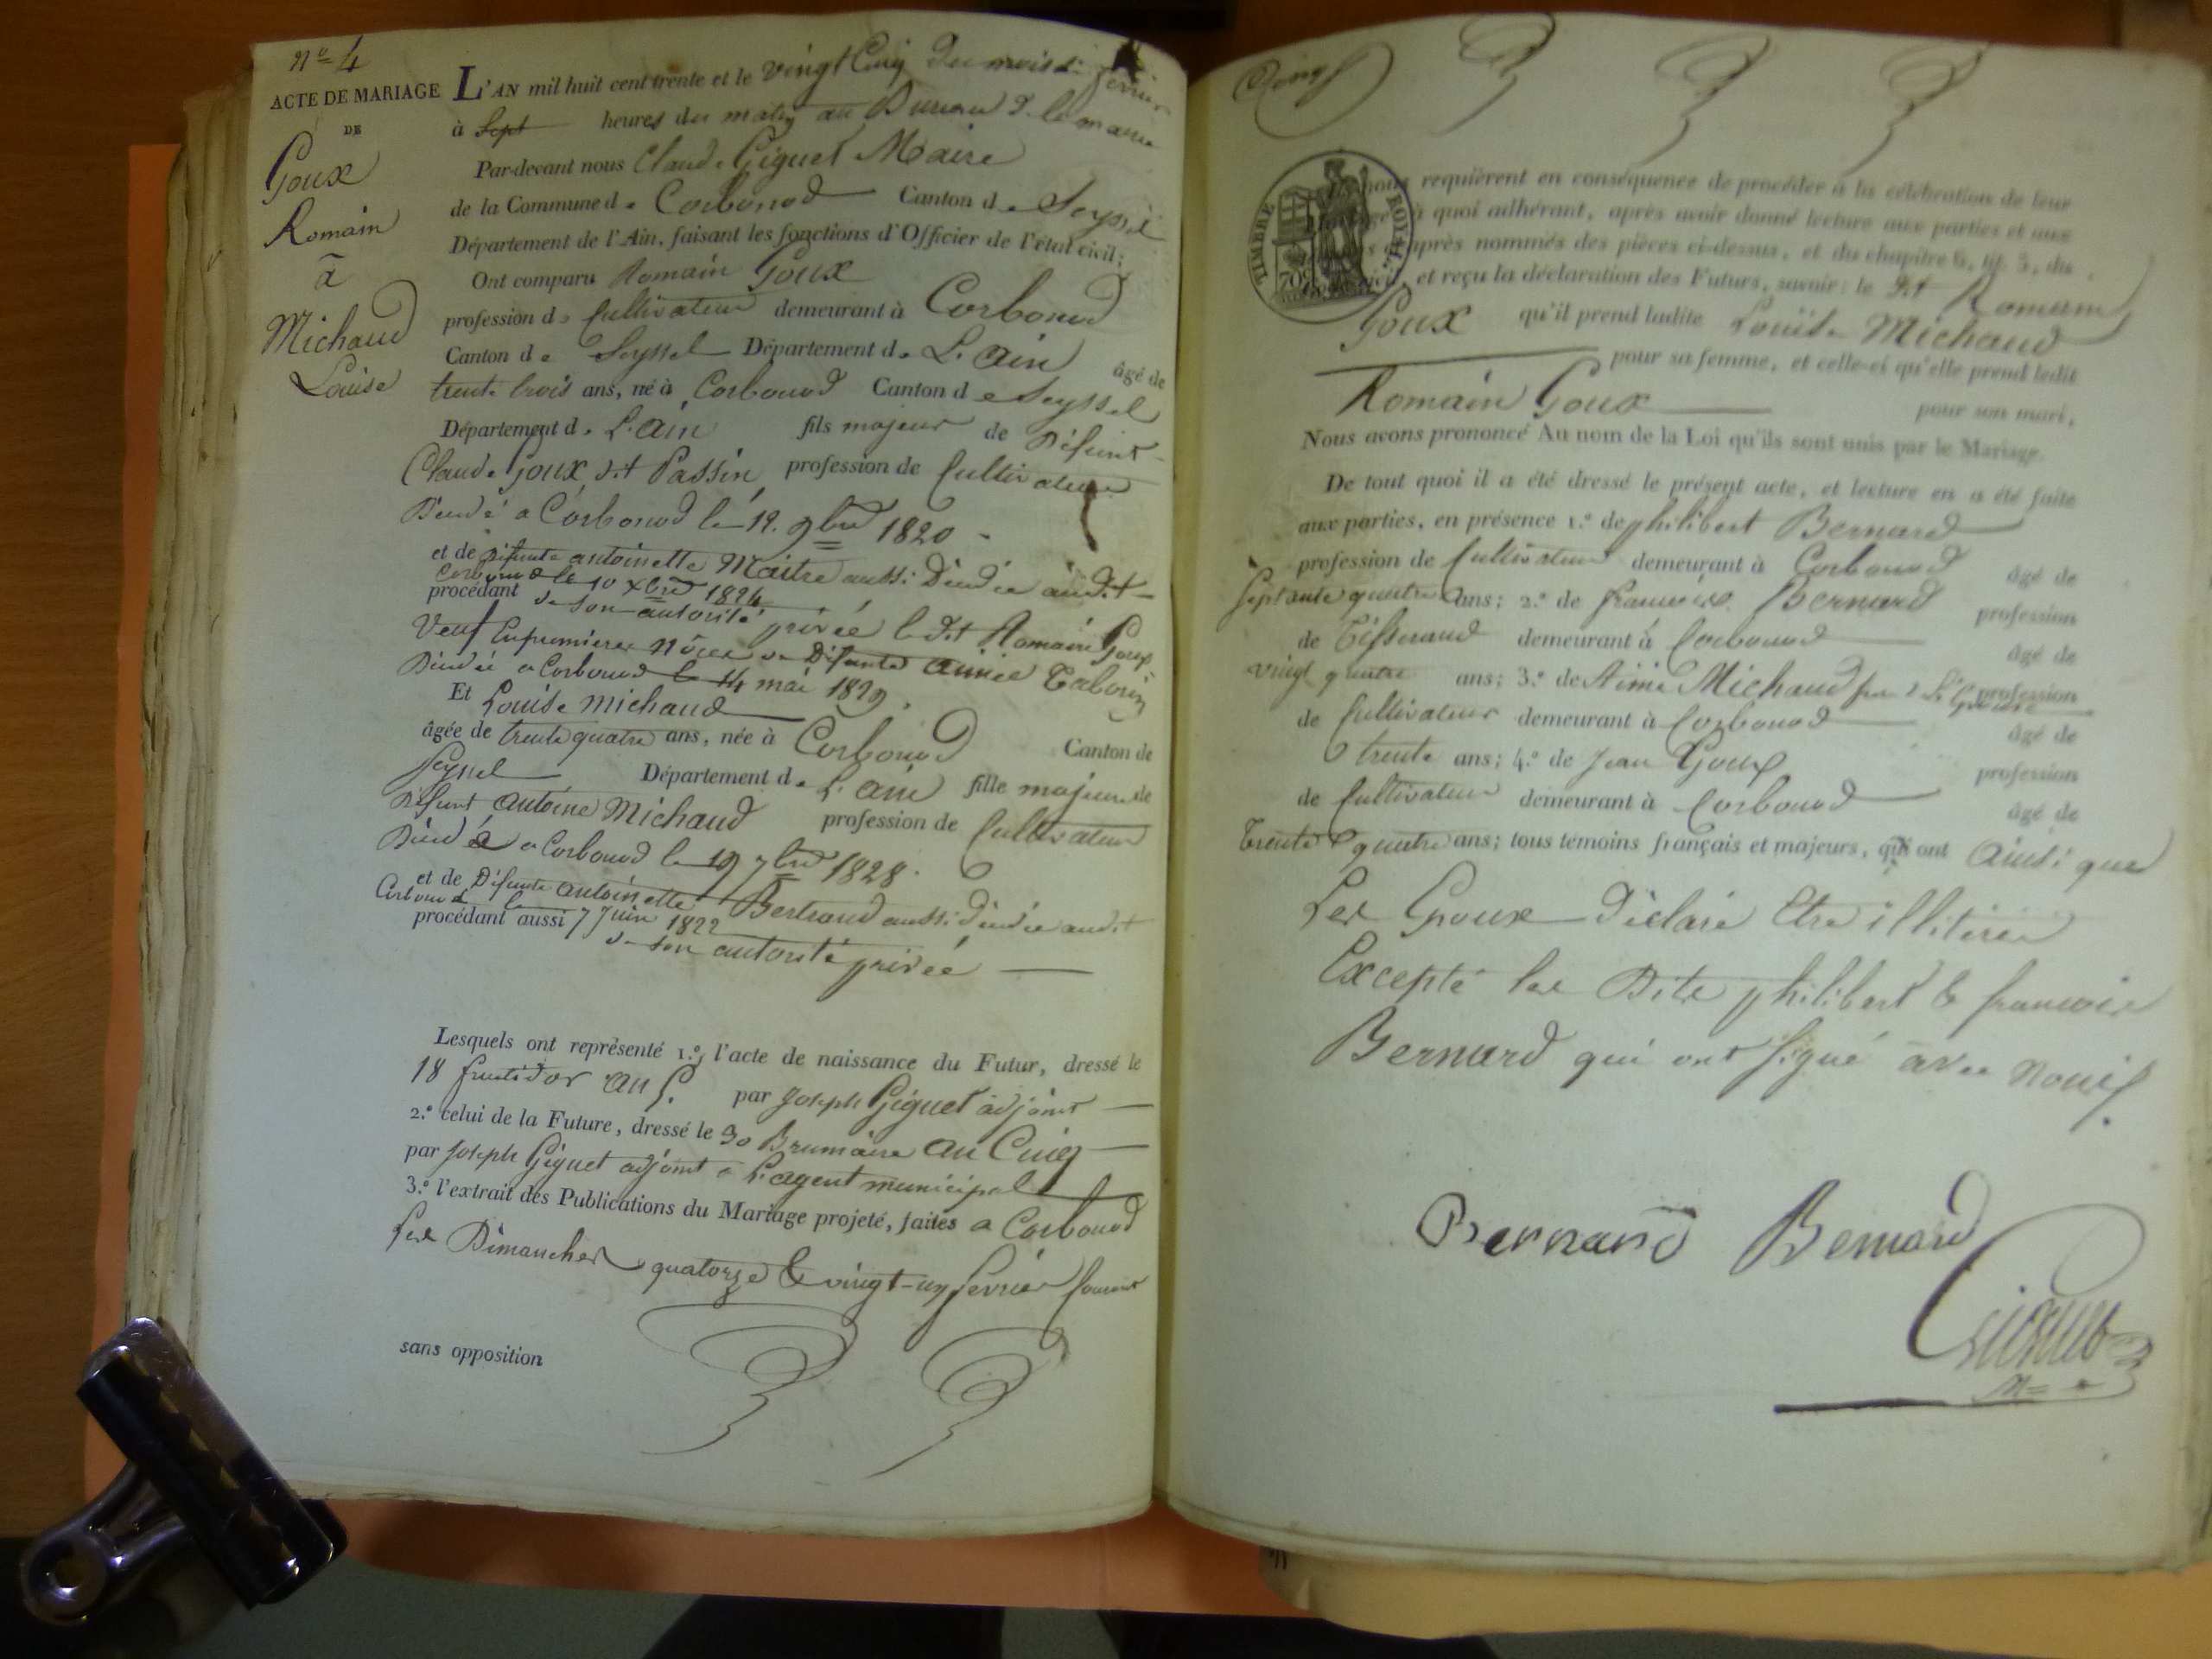 n° 4
ACTE DE MARIAGE
DE
Goux
Romain
à
Michaud
Louise
L'AN mil huit cent trente et le vingt Cinq du mois de fevrier
à Sept heures du matin au Bureau de la mairie
Par-devant nous Claude Giguet Maire
de la Commune de Corbonod Canton de Seyssel
Département de l'Ain, faisant les fonctions d'Officier de l'état civil;
Ont comparu Romain Goux
profession de Cultivateur demeurant à Corbonod
Canton de Seyssel Département de L'ain âgé de
trente trois ans, né à Corbonod Canton de Seyssel
Département de L'ain fils majeur de Défunt
Claude Goux dit Passin profession de Cultivateur
Décédé a Corbonod le 12. 9bre 1820
et de Défunte antoinette Maitre aussi Décédée audit
Corbonod le 10 xbre 1824
procédant de son autorité privée le dit Romain Goux
Veuf en premieres nôces de Défunte Aimée Tabouin
Décédée a Corbonod le 14 mai 1829.
Et Louise Michaud
âgée de trente quatre ans, née à Corbonod Canton de
Seyssel Département de L'ain fille majeure de
Défunt Antoine Michaud profession de Cultivateur
Décédé a Corbonod le 19 7bre 1828.
et de Défunte antoinette Bertrand aussi décédée audit
Corbonod le 7 Juin 1822
procédant aussi de son autorité privée
Lesquels ont représenté 1.° l'acte de naissance du Futur, dressé le
18 fructidor an 5. par Joseph Giguet adjoint
2.° celui de la Future, dressé le 30 Brumaire an Cinq
par Joseph Giguet adjoint a L'agent municipal
3.° l'extrait des Publications du Mariage projeté, faites a Corbonod
Les Dimanches quatorze & vingt-un fevrier Courant
sans opposition
Cinq
TIMBRE ROYAL
70c
nous requièrent en conséquence de procéder à la célébration de leur
à quoi adhérant, après avoir donné lecture aux parties et aux
après nommés des pièces ci-dessus, et du chapitre 6, tit. 5, du
et reçu la déclaration des Futurs, savoir: le dit Romain
Goux qu'il prend ladite Louise Michaud
pour sa femme, et celle-ci qu'elle prend ledit
Romain Goux pour son mari,
Nous avons prononcé Au nom de la Loi qu'ils sont unis par le Mariage.
De tout quoi il a été dressé le présent acte, et lecture en a été faite
aux parties, en présence 1.° de philibert Bernard
profession de Cultivateur demeurant à Corbonod âgé de
Septante quatre ans; 2.° de francois Bernard profession
de Tisserand demeurant à Corbonod âgé de
vingt quatre ans; 3.° de Aimé Michaud profession
de Cultivateur demeurant à Corbonod âgé de
trente ans; 4.° de Jean Goux profession
de Cultivateur demeurant à Corbonod âgé de
Trente quatre ans; tous témoins français et majeurs, qui ont Ainsi que
Les Epoux Déclaré Etre illitérés
Excepté les Dits philibert & francois
Bernard qui ont signé avec nous.
Bernard Bernard
Giguet